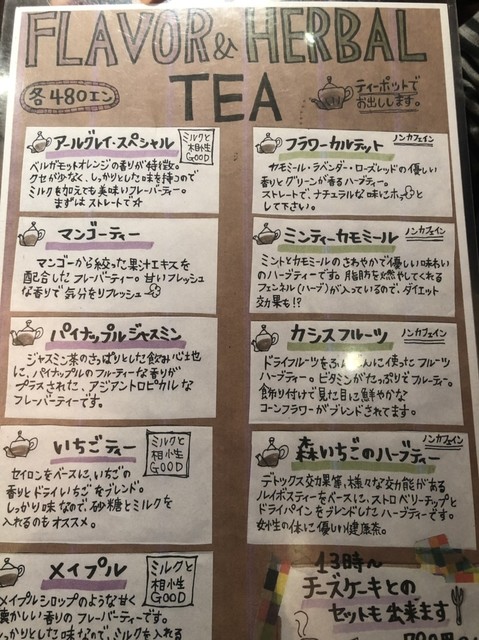 FLAVOR & HERBAL
TEA
各480エン
ティーポットで
お出しします。
アールグレイ・スペシャル
ミルクと
相性
GOOD
ベルガモットオレンジの香りが特徴。
クセが少なく、しっかりとした味を持つので
ミルクを加えても美味いフレーバーティー。
まずはストレートで☆
マンゴーティー
マンゴーから絞った果汁エキスを
配合したフレーバーティー。甘いフレッシュ
な香りで気分をリフレッシュ
パイナップルジャスミン
ジャスミン茶のさっぱりとした飲み心地
に、パイナップルのフルーティーな香りが
プラスされた、アジアントロピカルな
フレーバーティーです。
いちごティー
ミルクと
相小生
GOOD
セイロンをベースに、いちごの
香りとドライいちごをブレンド。
しっかり味なので、砂糖とミルクを
入れるのもオススメ。
メイプル
ミルクと
相小生
GOOD
メイプルシロップのような甘く
懐かしい香りのフレーバーティーです。
しっかりとした味なので、ミルクを入れる
フラワーカルテット
ノンカフェイン
カモミール・ラベンダー・ローズレッドの優しい
香りとグリーンが香るハーブティー。
ストレートで、ナチュラルな味にホッと
して下さい。
ミンティーカモミール
ノンカフェイン
ミントとカモミールのさわやかで優しい味わい
のハーブティーです。脂肪を燃やしてくれる
フェンネル(ハーブ)が入っているので、ダイエット
効果も!?
カシスフルーツ
ノンカフェイン
ドライフルーツをふんだんに使ったフルーツ
ハーブティー。ビタミンがたっぷりでフルーティー。
飾り付けで見た目に鮮やかな
コーンフラワーがブレンドされてます。
森いちごのハーブティー
ノンカフェイン
デトックス交力果等、様々な交力能がある
ルイボスティーをベースに、ストロベリーチップと
ドライパインをブレンドしたハーブティーです。
女性の体に優しい健康茶。
13時〜
チーズケーキとの
セットも出来ます